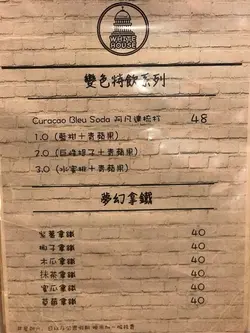 WHITE HOUSE
變色特飲系列
Curacao Bleu Soda 阿凡達梳打 48
1.0 (藍柑+青蘋果)
2.0 (巨峰提子+青蘋果)
3.0 (水蜜桃+青蘋果)
夢幻拿鐵
紫薯拿鐵 40
椰子拿鐵 40
木瓜拿鐵 40
抹茶拿鐵 40
蜜瓜拿鐵 40
草莓拿鐵 40